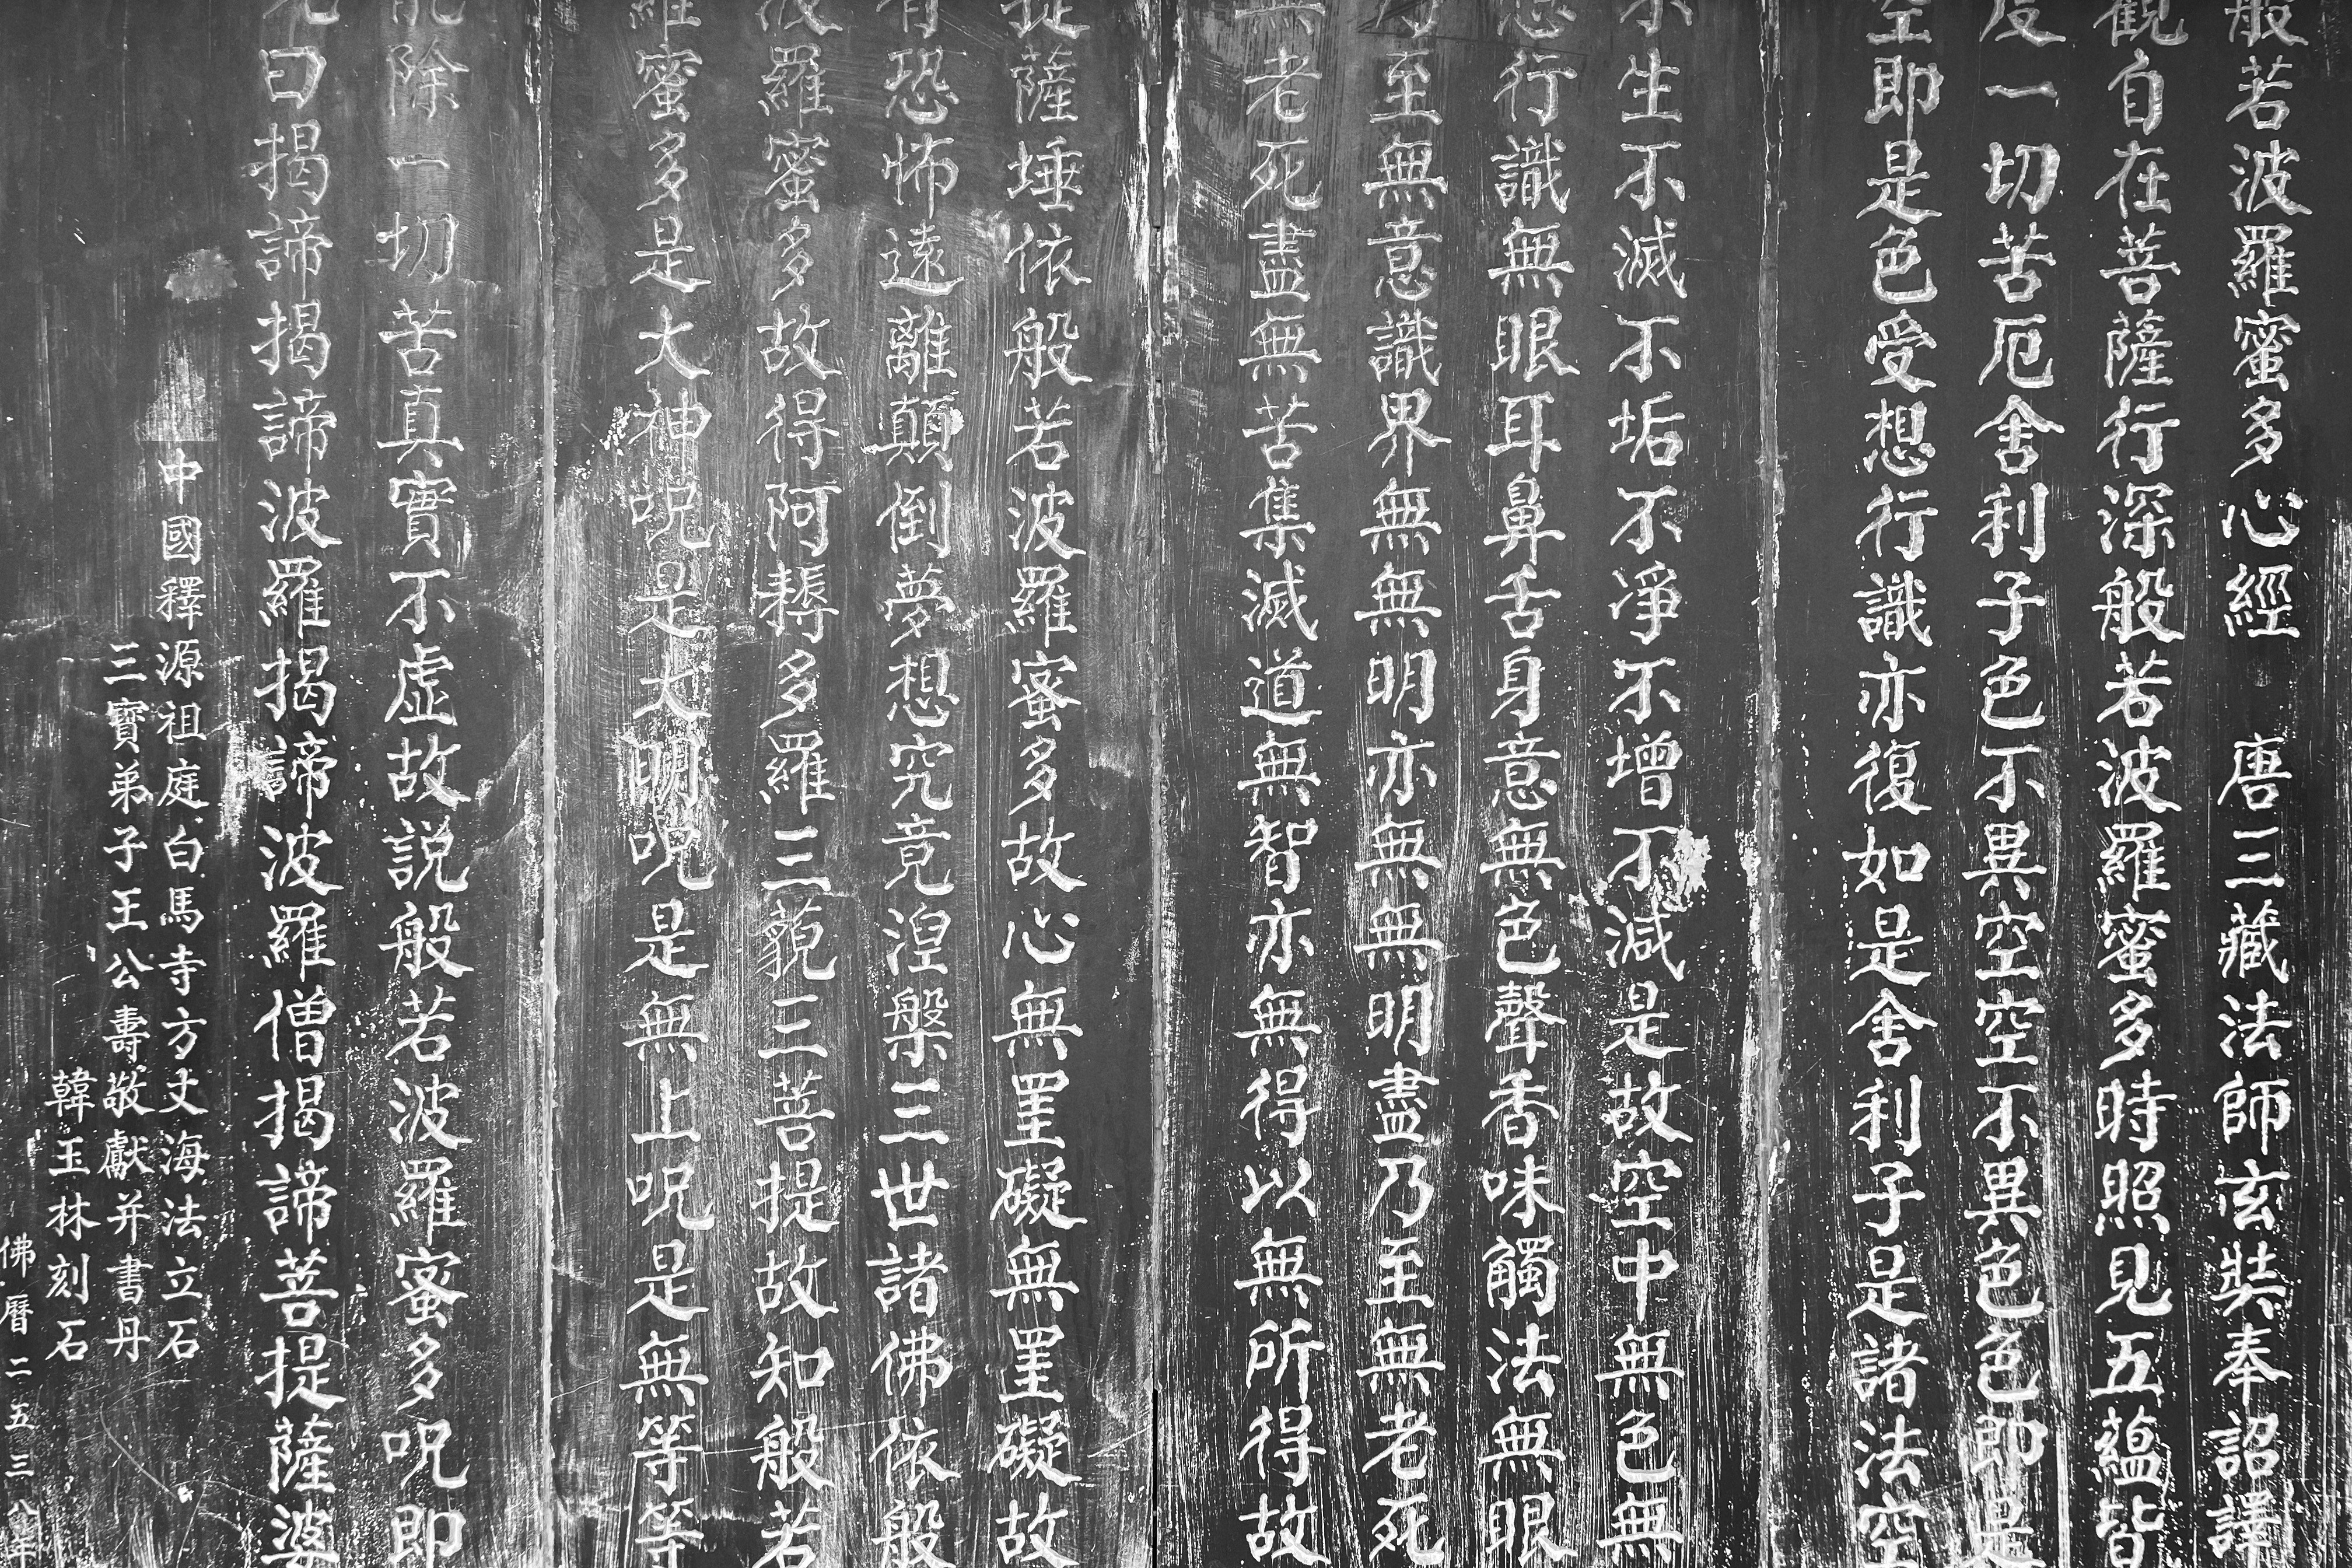 般若波羅蜜多心經 唐三藏法師玄奘奉詔譯
觀自在菩薩行深般若波羅蜜多時照見五蘊皆
度一切苦厄舍利子色不異空空不異色色即是
空即是色受想行識亦復如是舍利子是諸法空
不生不滅不垢不淨不增不減是故空中無色無
想行識無眼耳鼻舌身意無色聲香味觸法無眼
乃至無意識界無無明亦無無明盡乃至無老死
無老死盡無苦集滅道無智亦無得以無所得故
提薩埵依般若波羅蜜多故心無罣礙無罣礙故
有恐怖遠離顛倒夢想究竟涅槃三世諸佛依般
波羅蜜多故得阿耨多羅三藐三菩提故知般若
羅蜜多是大神呪是大明呪是無上呪是無等等
能除一切苦真實不虛故說般若波羅蜜多呪即
曰揭諦揭諦波羅揭諦波羅僧揭諦菩提薩婆
中國釋源祖庭白馬寺方丈海法立石
三寶弟子王公壽敬獻并書丹
韓玉林刻石
佛曆二五三八年